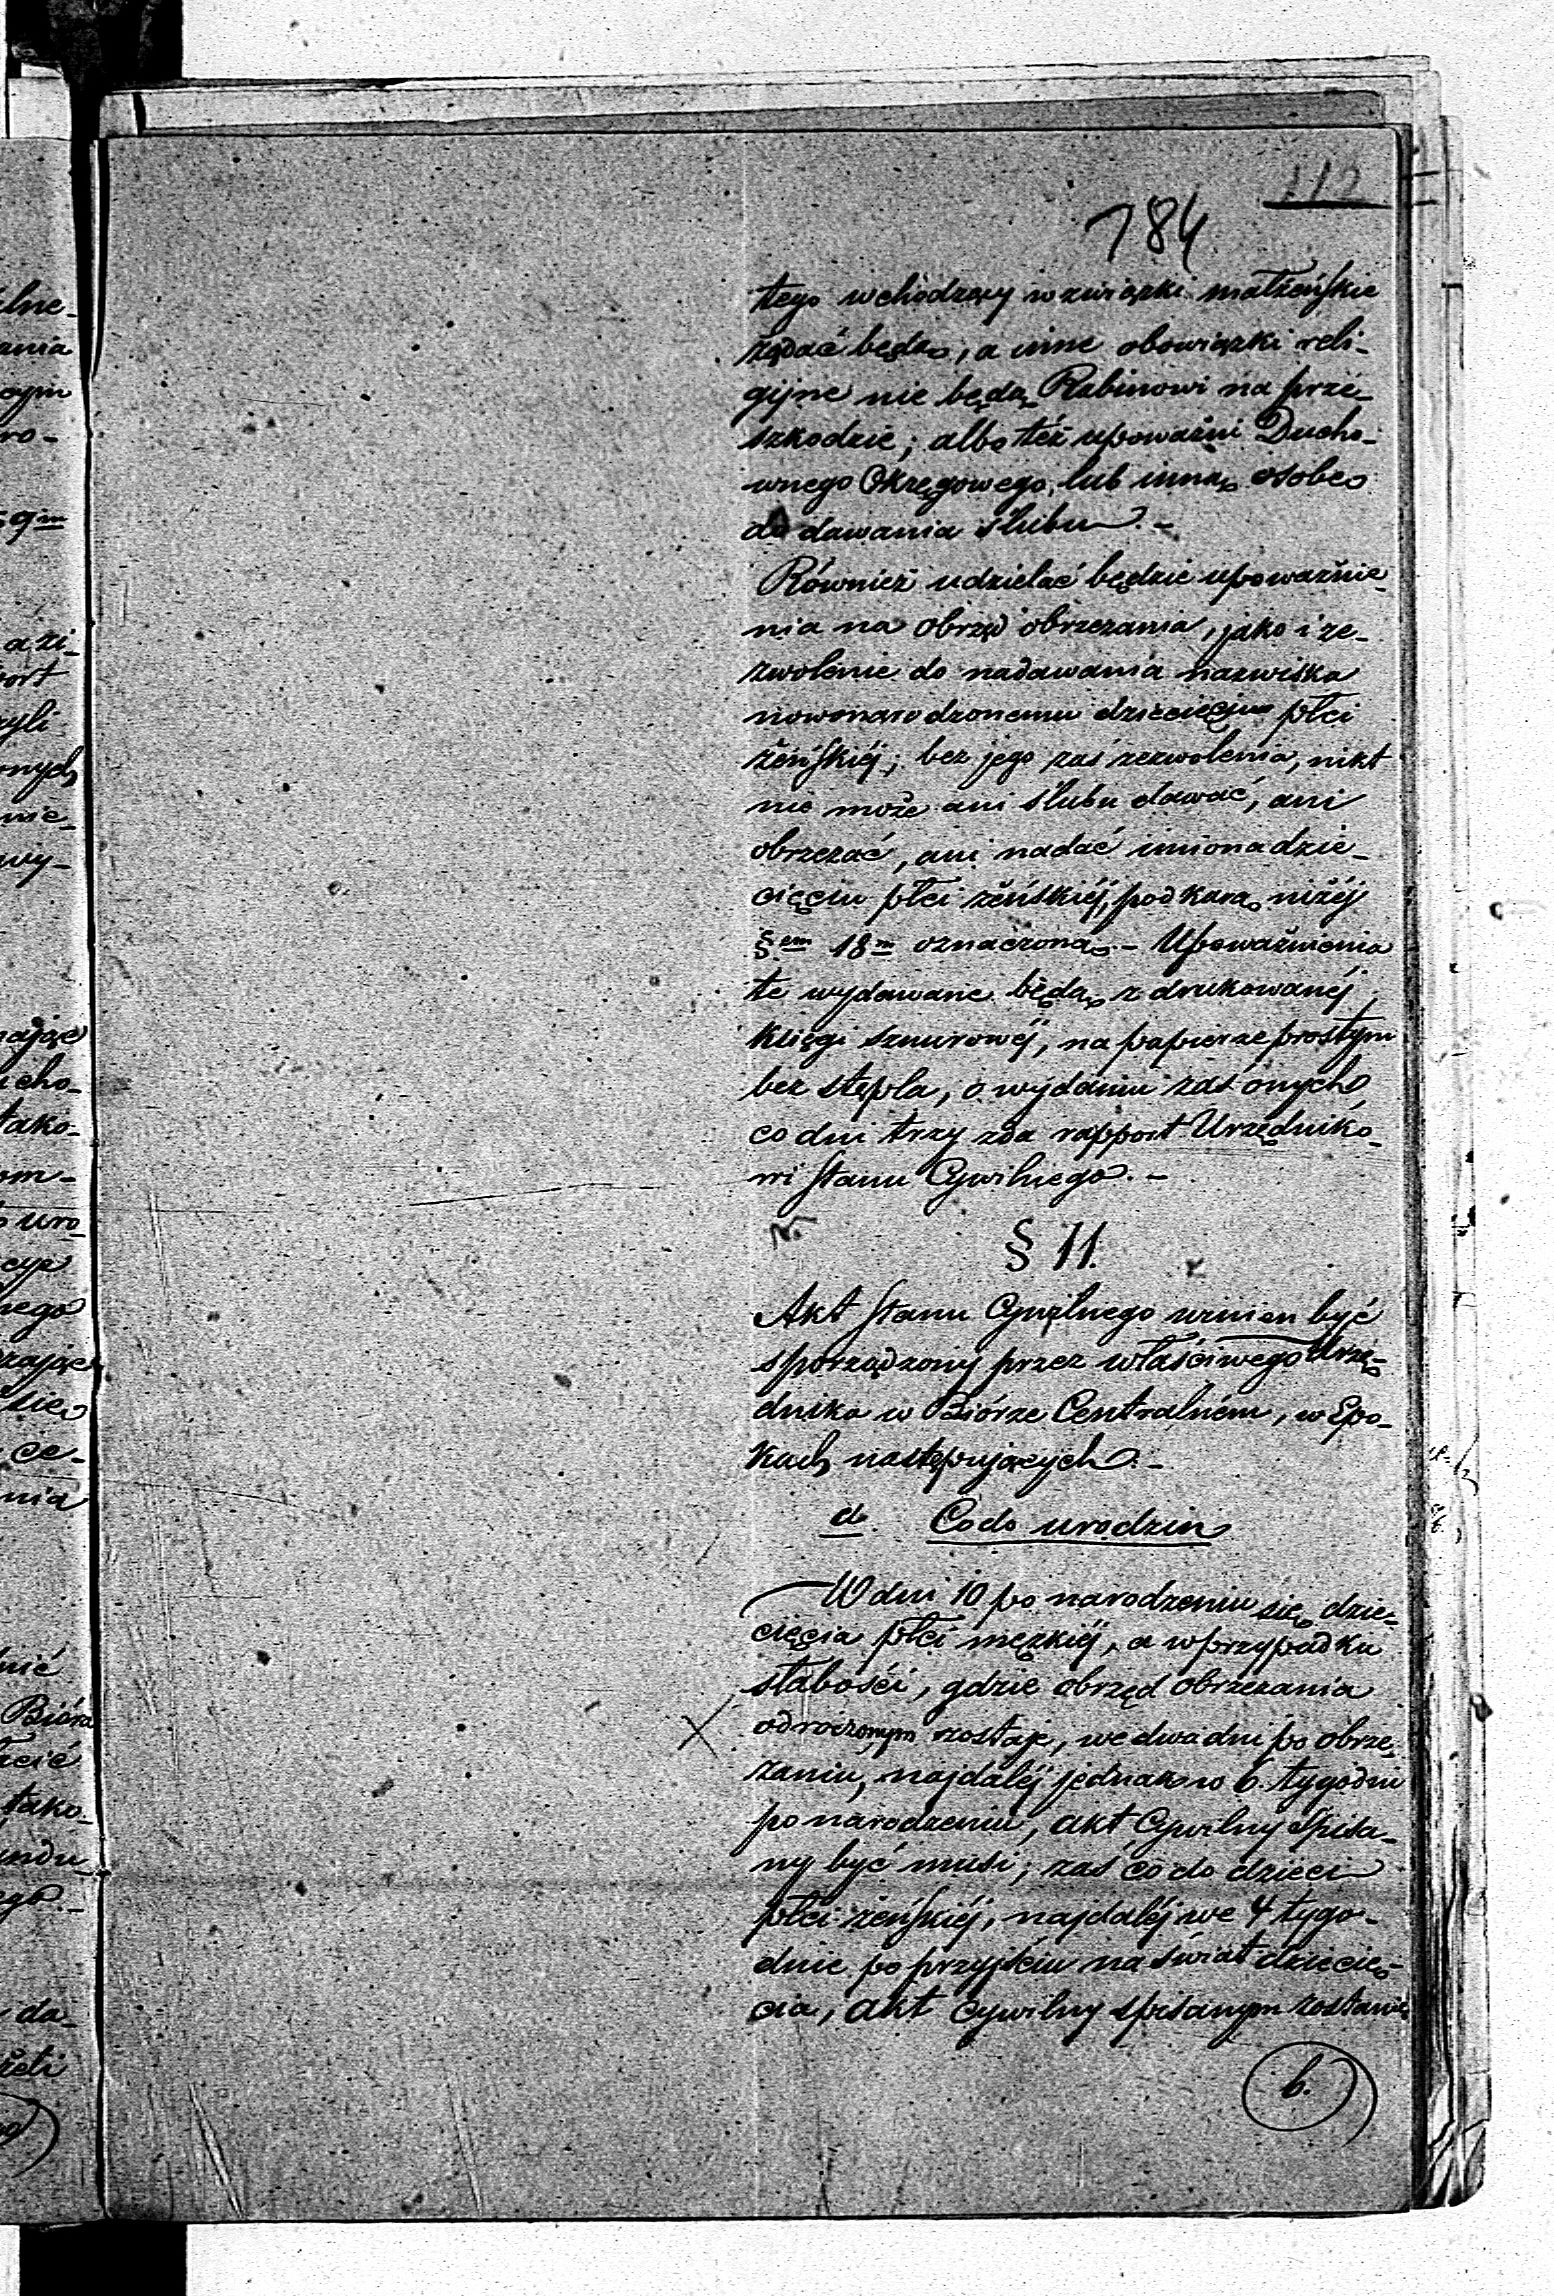 112
184
tego wchodzący w związki małżeńskie
żądać będą, a inne obowiązki reli-
gijne nie będą Rabinowi na prze-
szkodzie; albo też upoważni Ducho-
wnego Okręgowego, lub inną osobę
do dawania ślubu. -
Również udzielać będzie upoważnie-
nia na obrzęd obrzezania, jako i ze-
zwolenie do nadawania nazwiska
nowonarodzonemu dziecięciu płci
żeńskiéj; bez jego zaś zezwolenia, nikt
nie może ani ślubu dawać, ani
obrzezać, ani nadać imiona dzie-
cięciu płci żeńskiéj, pod karą niżéj
§em 18m oznaczoną. - Upoważnienia
te wydawane będą z drukowanéj
Księgi sznurowéj, na papierze prostym
bez stępla, o wydaniu zaś onych
co dni trzy zda rapport Urzędniko-
wi Stanu Cywilnego. -
§ 11.
Akt Stanu Cywilnego winien być
sporządzony przez właściwego Urzę-
dnika w Biórze Centralném, w Epo-
kach następujących. -
a. Co do urodzin
W dni 10 po narodzeniu się dzie-
cięcia płci męzkiéj, a w przypadku
słabości, gdzie obrzęd obrzezania
odroczonym zostaje, we dwa dni po obrze-
zaniu, najdaléj jednak w 6. tygodni
po narodzeniu, akt Cywilny spisa-
ny być musi; zaś co do dzieci
płci żeńskiéj, najdaléj we 4 tygo-
dnie po przyjściu na świat dziecię-
cia, akt Cywilny spisanym zostanie
b.